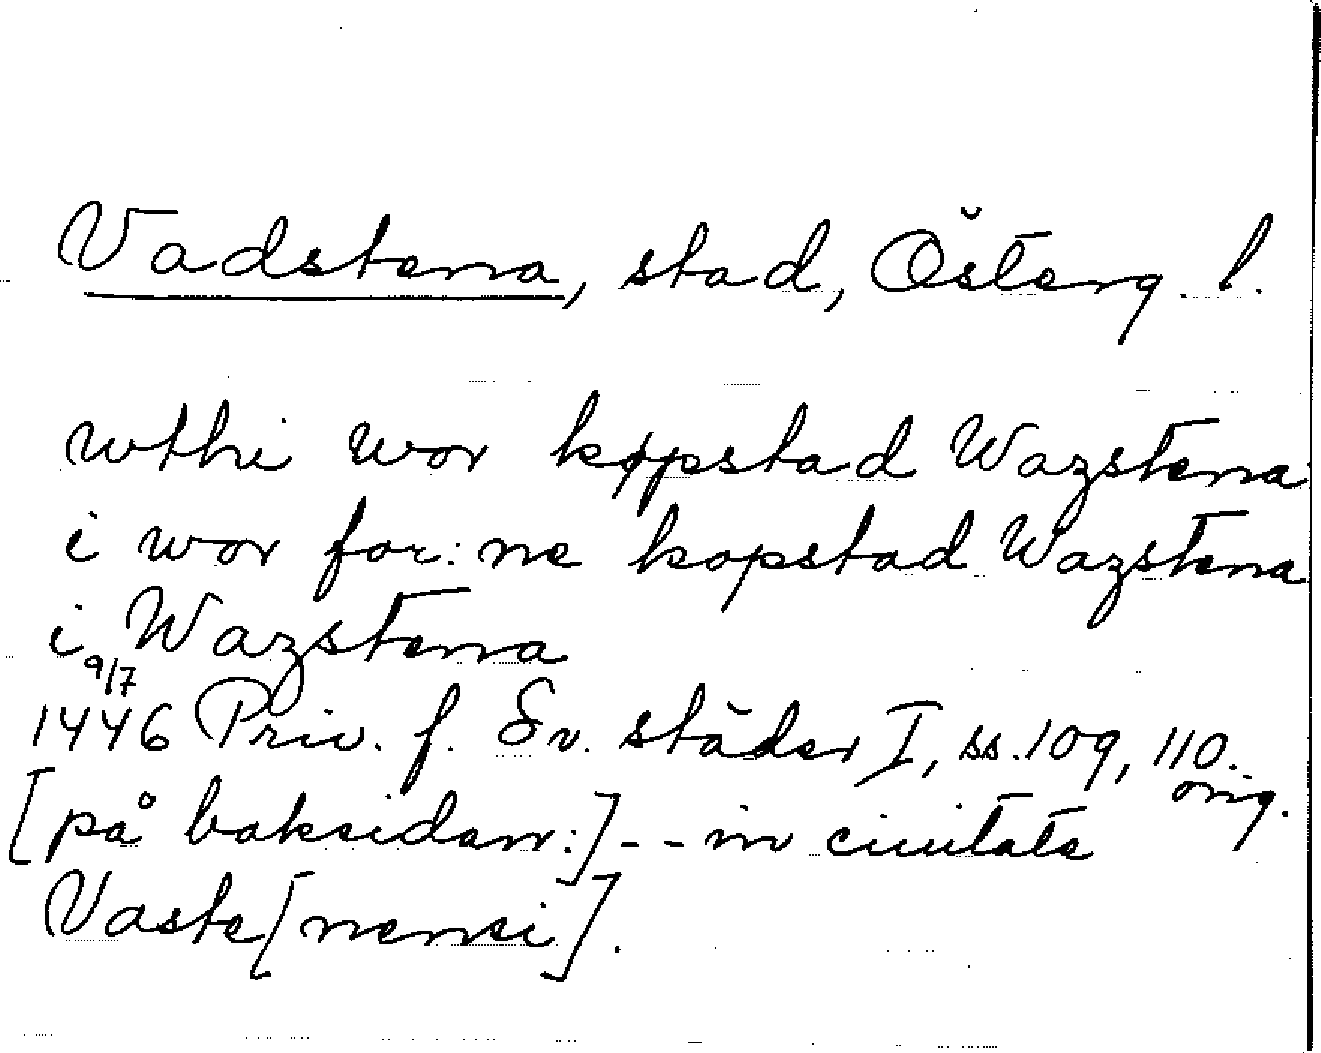 Vadstena, stad, Österg. l.
wthi wor køpstad Wazstena
i wor for:ne kopstad Wazstena
i Wazstena
9/7
1446 Priv. f. Sv. städer I, ss. 109, 110.
orig.
[på baksidan:] -- in ciuitate
Vaste[nensi].